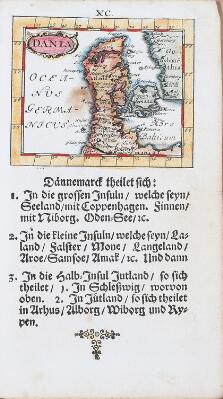 XC.
DANIA
OCEANUS
GERMANICUS
Balticum
Dännemarck theilet sich:
1. In die grossen Insuln/ welche seyn/
Seeland/mit Coppenhagen. Finnen/
mit Niborg. Oden-See/ꝛc.
2. In die kleine Insuln/welche seyn/La-
land/ Falster/ Mone/ Langeland/
Aroe/Samsoe/ Amak/ ꝛc. Und dann
3. In die Halb-Insul Jutland/ so sich
theilet/ 1. In Schleßwig/ worvon
oben. 2. In Jütland/ so sich theilet
in Arhus/ Alborg/ Wiborg und Ry-
pen.